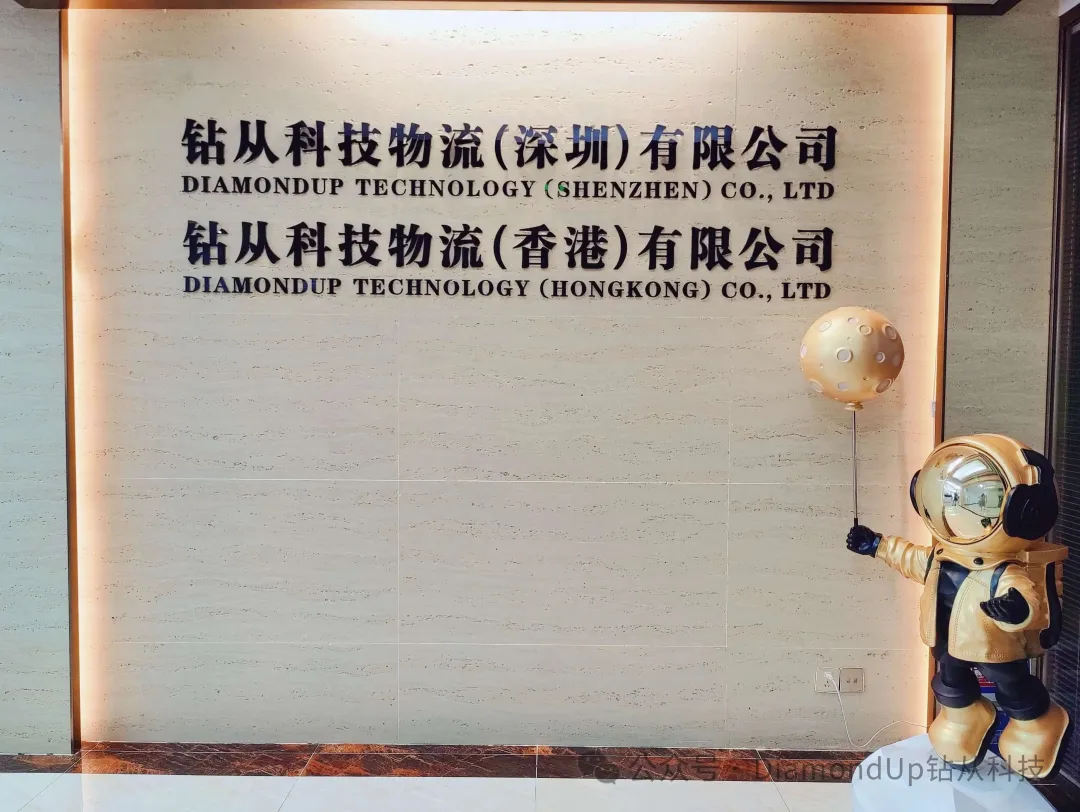 钻从科技物流(深圳)有限公司
DIAMONDUP TECHNOLOGY (SHENZHEN) CO., LTD
钻从科技物流(香港)有限公司
DIAMONDUP TECHNOLOGY (HONGKONG) CO., LTD
公众号 · DiamondUp钻从科技